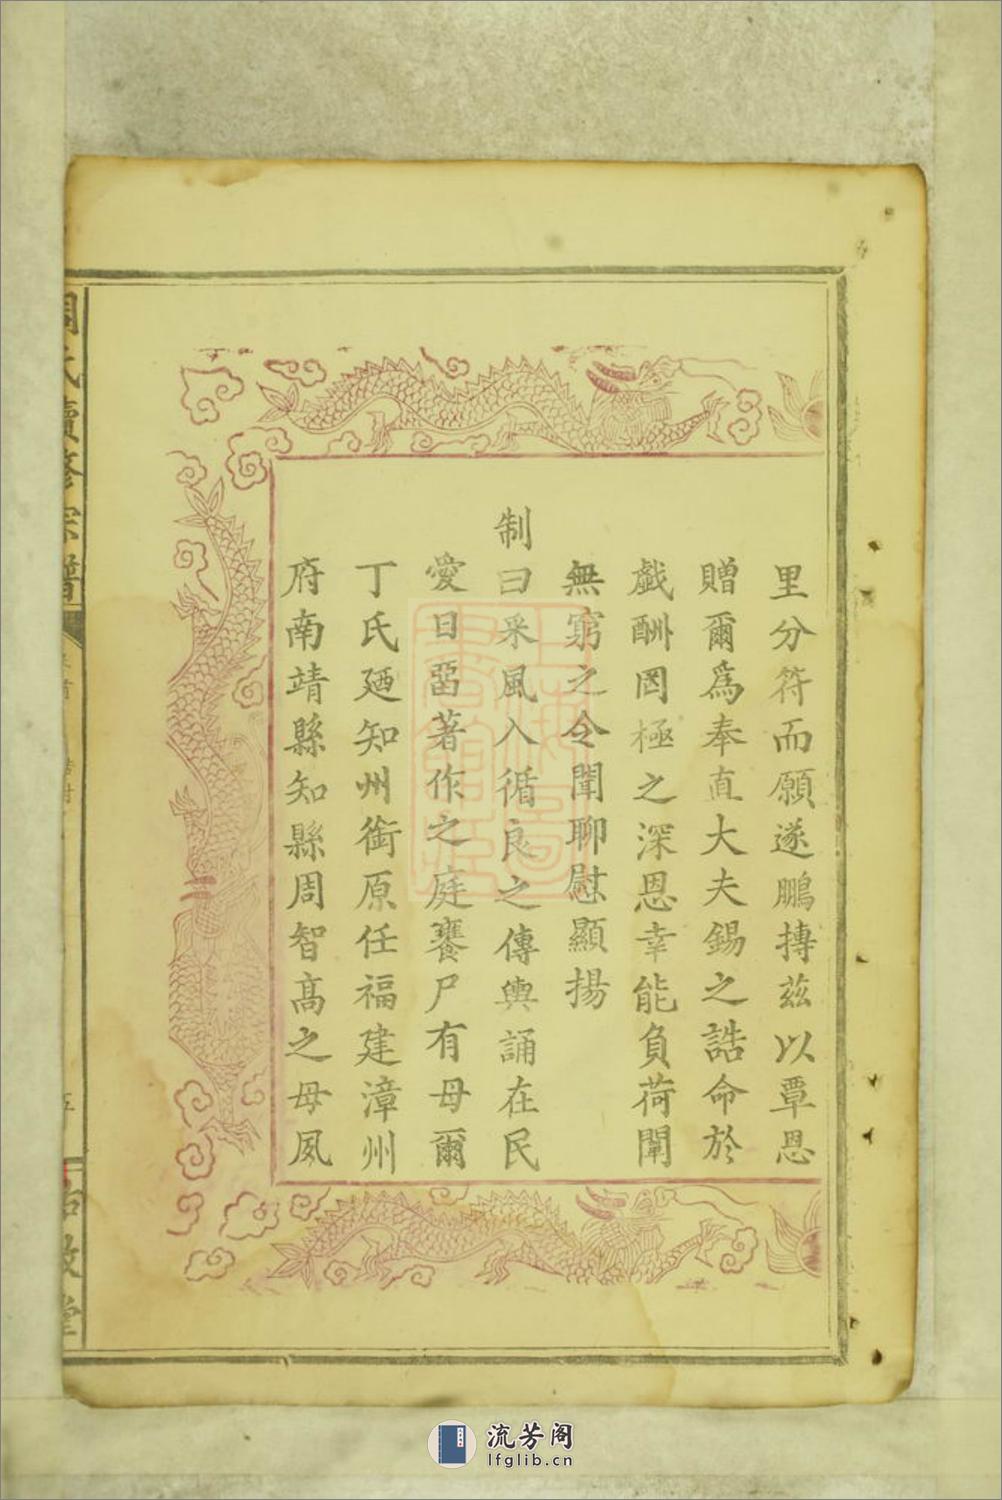 里分符而願遂鵬摶茲以覃恩
贈爾為奉直大夫錫之誥命於
戲酬罔極之深恩幸能負荷闡
無窮之令聞聊慰顯揚
制曰采風入循良之傳輿誦在民
愛日啚著作之庭饔尸有母爾
丁氏廼知州銜原任福建漳州
府南靖縣知縣周智高之母夙
周氏續修宗譜
卷首
誥封
五
流芳阁
lfglib.cn